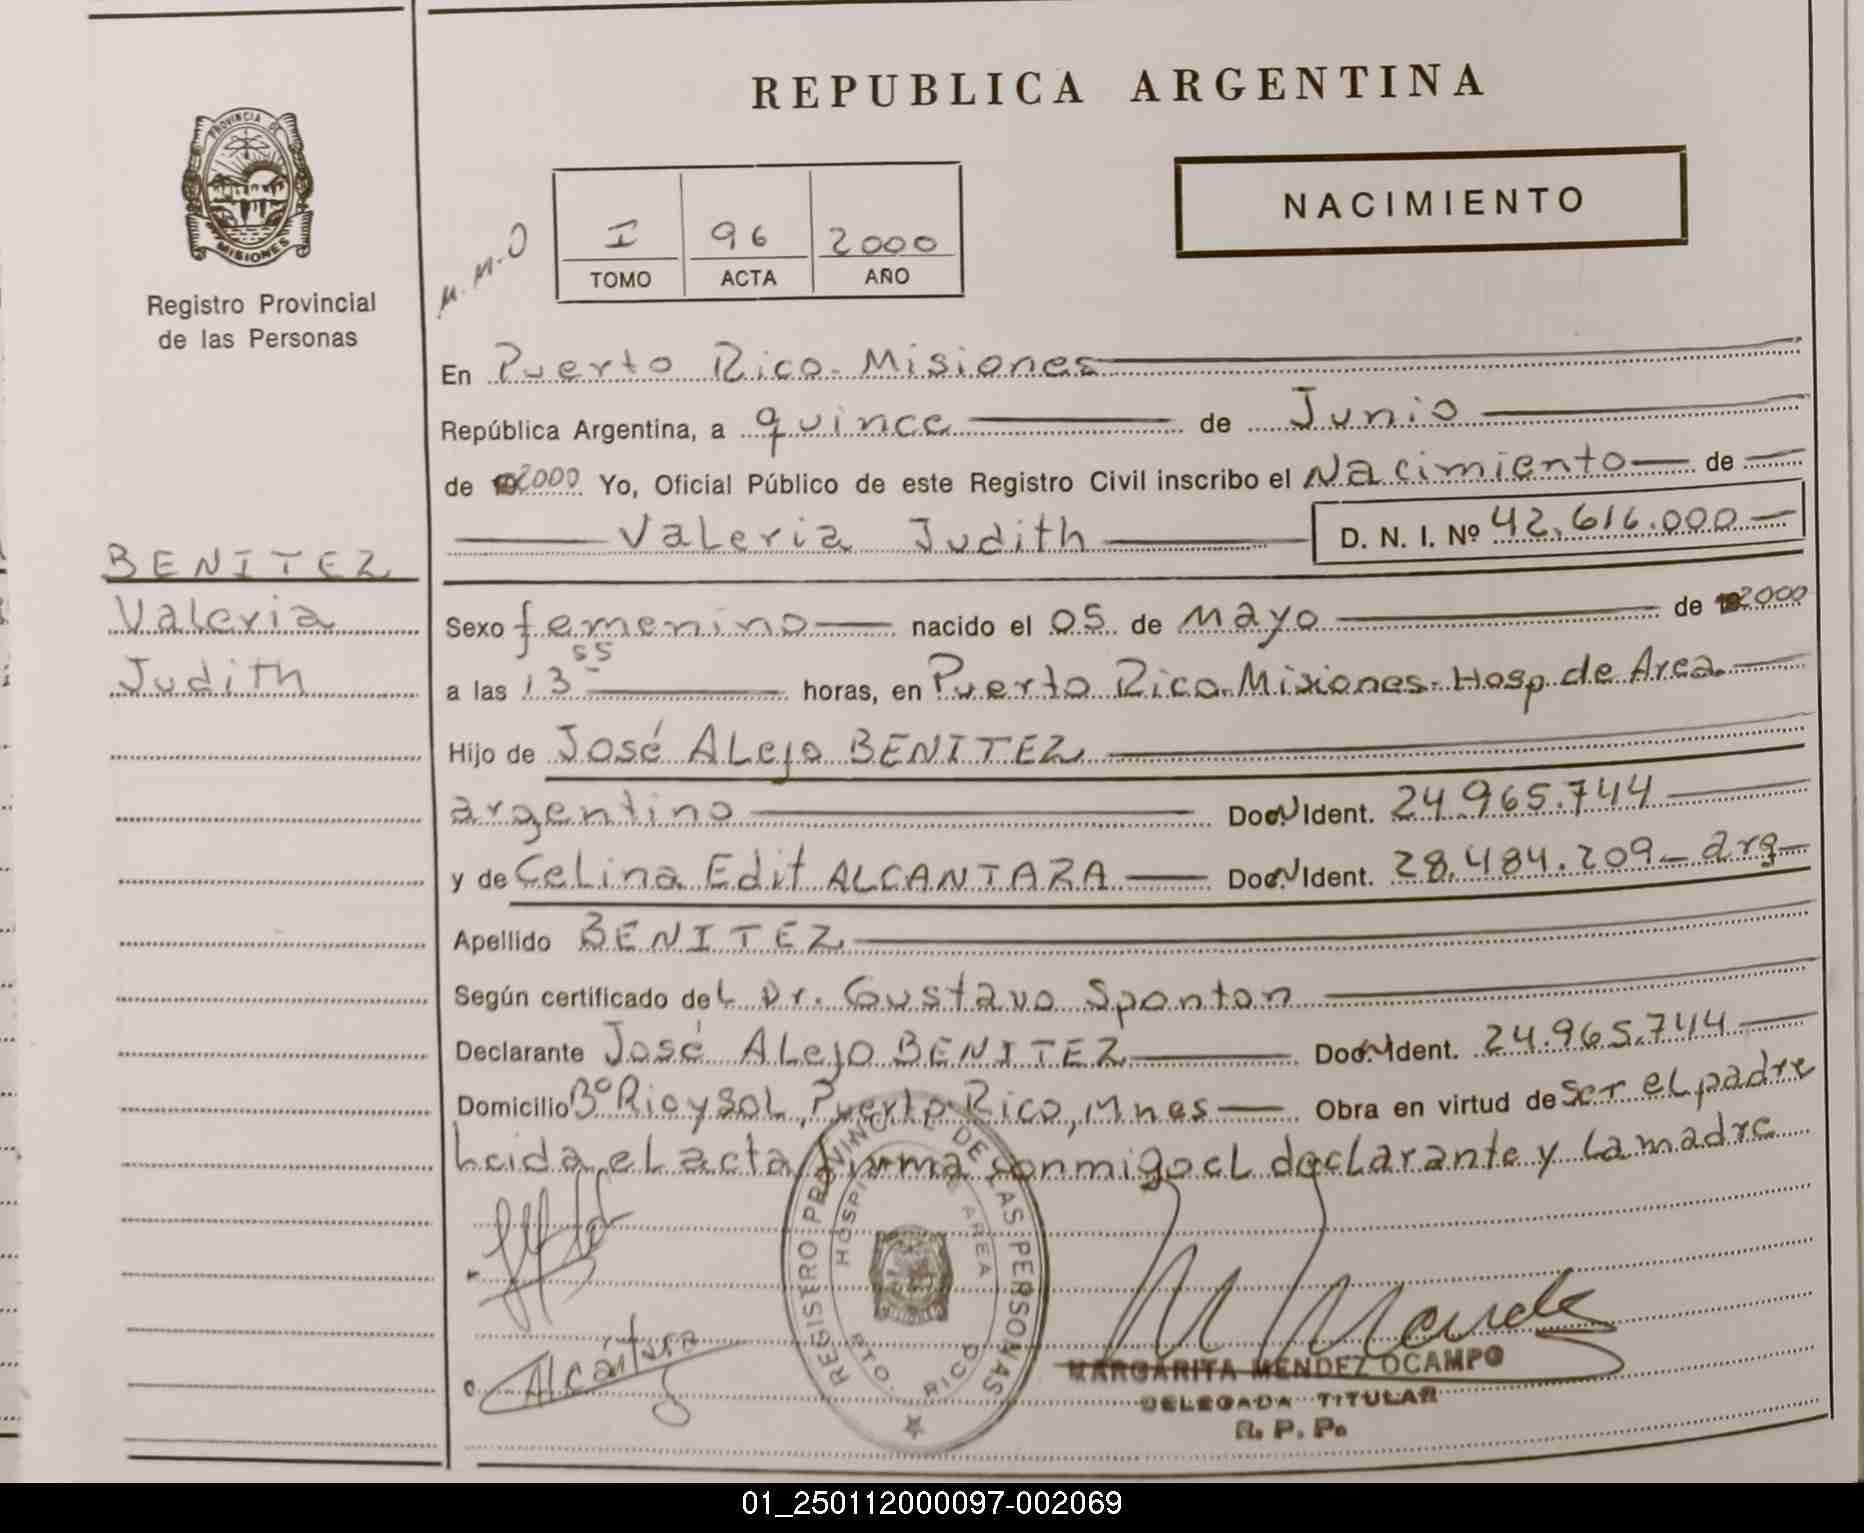 REPUBLICA ARGENTINA
PROVINCIA DE
MISIONES
Registro Provincial
de las Personas
NACIMIENTO
M.M.O
I 96 2000
TOMO ACTA AÑO
En Puerto Rico - Misiones
República Argentina, a quince de Junio
de 2000 Yo, Oficial Público de este Registro Civil inscribo el Nacimiento de
Valeria Judith D. N. I. Nº 42.616.000
BENITEZ
Valeria
Judith
Sexo femenino nacido el 05 de Mayo de 2000
a las 13 55 horas, en Puerto Rico - Misiones - Hosp. de Area
Hijo de José Alejo BENITEZ
argentino Doc. N Ident. 24.965.744
y de Celina Edit ALCANTARA Doc. N Ident. 28.484.209 - arg
Apellido BENITEZ
Según certificado del Dr. Gustavo Sponton
Declarante José Alejo BENITEZ Doc. N Ident. 24.965.744
Domicilio Bº Rio y Sol, Puerto Rico, Mnes Obra en virtud de ser el padre
Leida el acta firma conmigo el declarante y la madre
REGISTRO PROVINCIAL DE LAS PERSONAS
HOSPITAL DE AREA
PTO. RICO
Alcantara
M Mendez
MARGARITA MENDEZ OCAMPO
DELEGADA TITULAR
R. P. P.
01_250112000097-002069